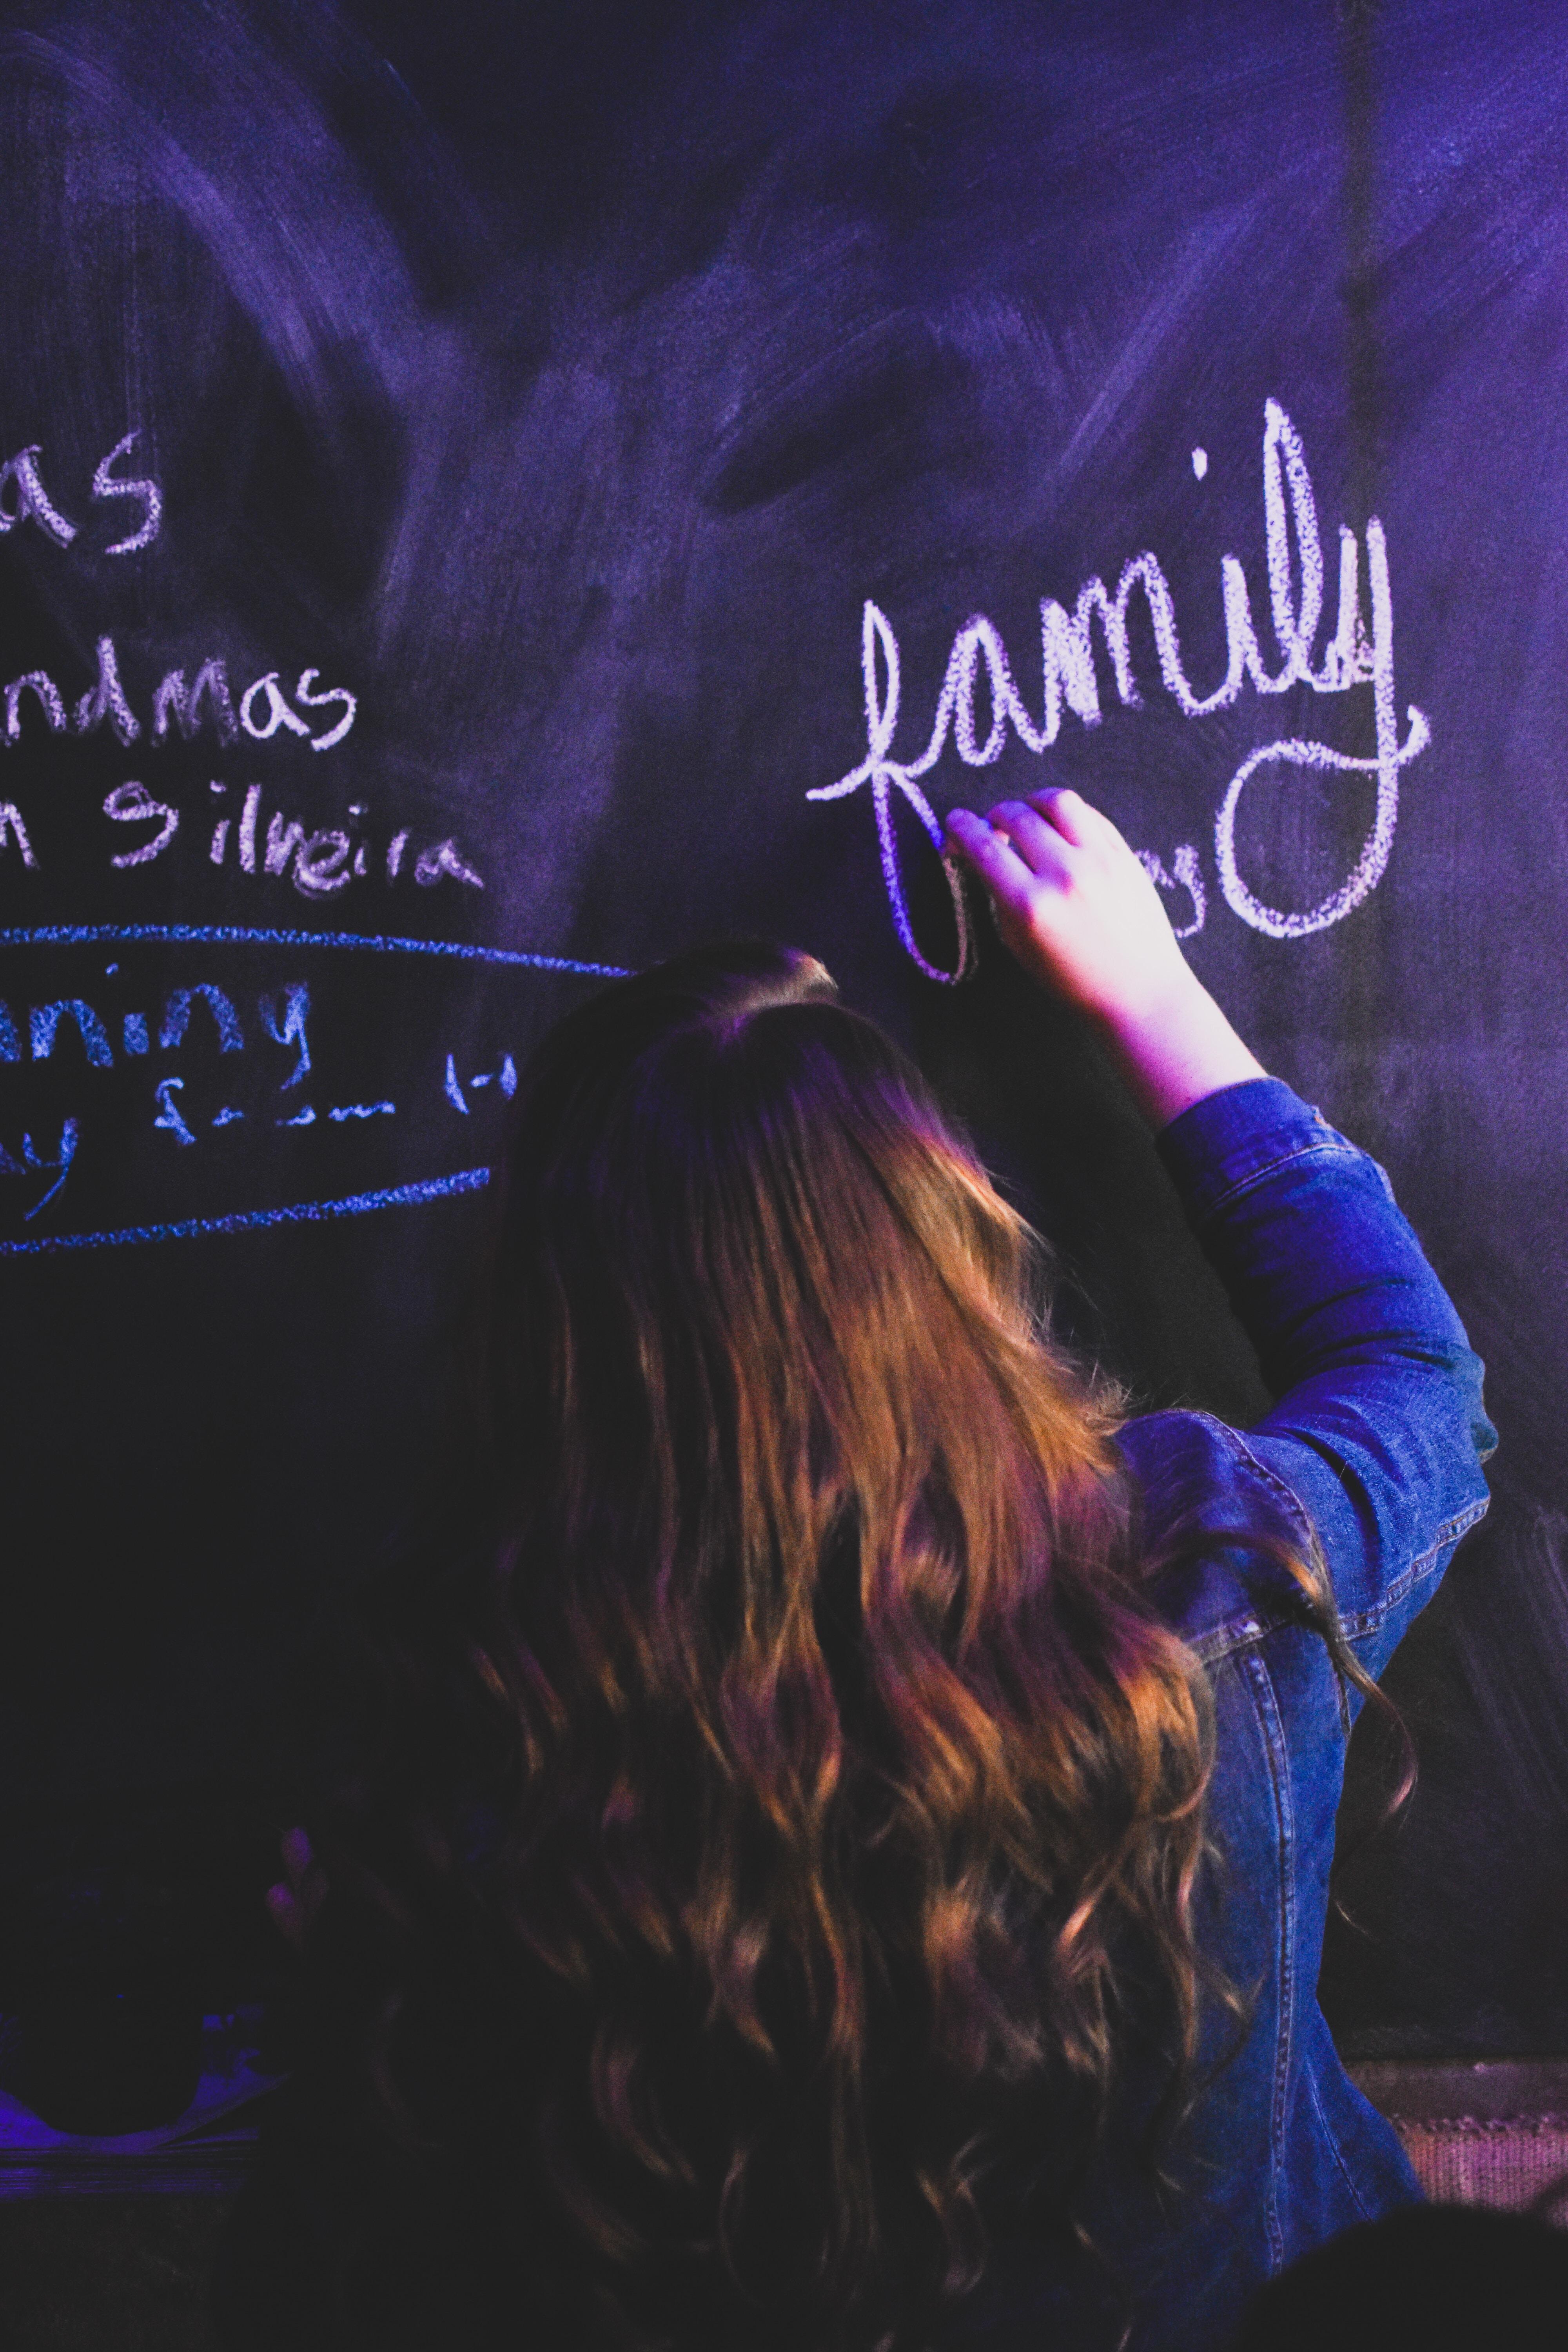 as
ndmas
n Silveira
nning
ay from H
family